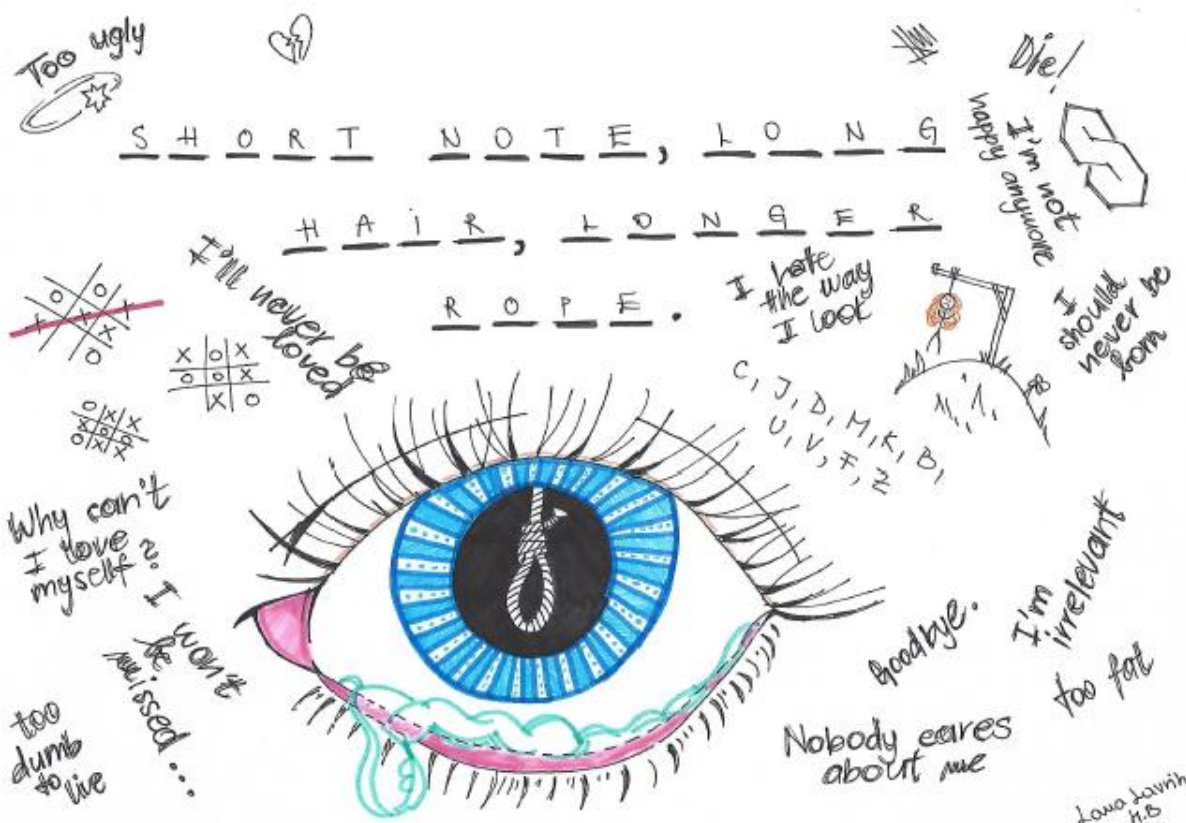 Too ugly
Die!
SHORT NOTE, LONG
HAiR, LONGER
ROPE.
I'm not
happy anymore
I'll never be
loved
I hate
the way
I look
I
should
never be
born
C, J, D, M, K, B,
U, V, F, Z
Why can't
I love
myself?
I won't
be
missed...
too
dumb
to live
Goodbye.
I'm
irrelevant
too fat
Nobody cares
about me